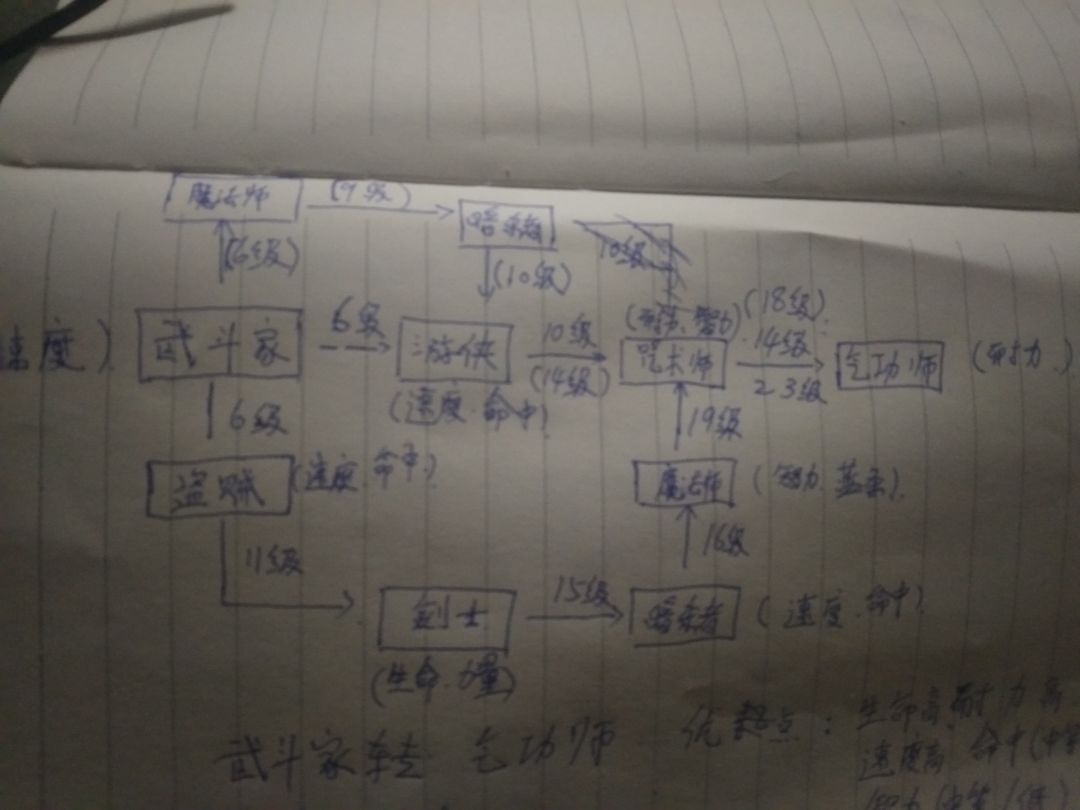 魔法师 (9级) 暗杀者
(6级) (10级) 10级
速度) 武斗家 6级 游侠 10级 (14级) 咒术师 (18级) 14级 23级 气功师 (耐力)
(速度.命中)
6级 19级
盗贼 (速度.命中) 魔法师 (智力.
11级 16级
剑士 15级 暗杀者 (速度.命中)
(生命.力量)
武斗家转 气功师 优缺点: 生命高 耐力高
速度高 命中(中等